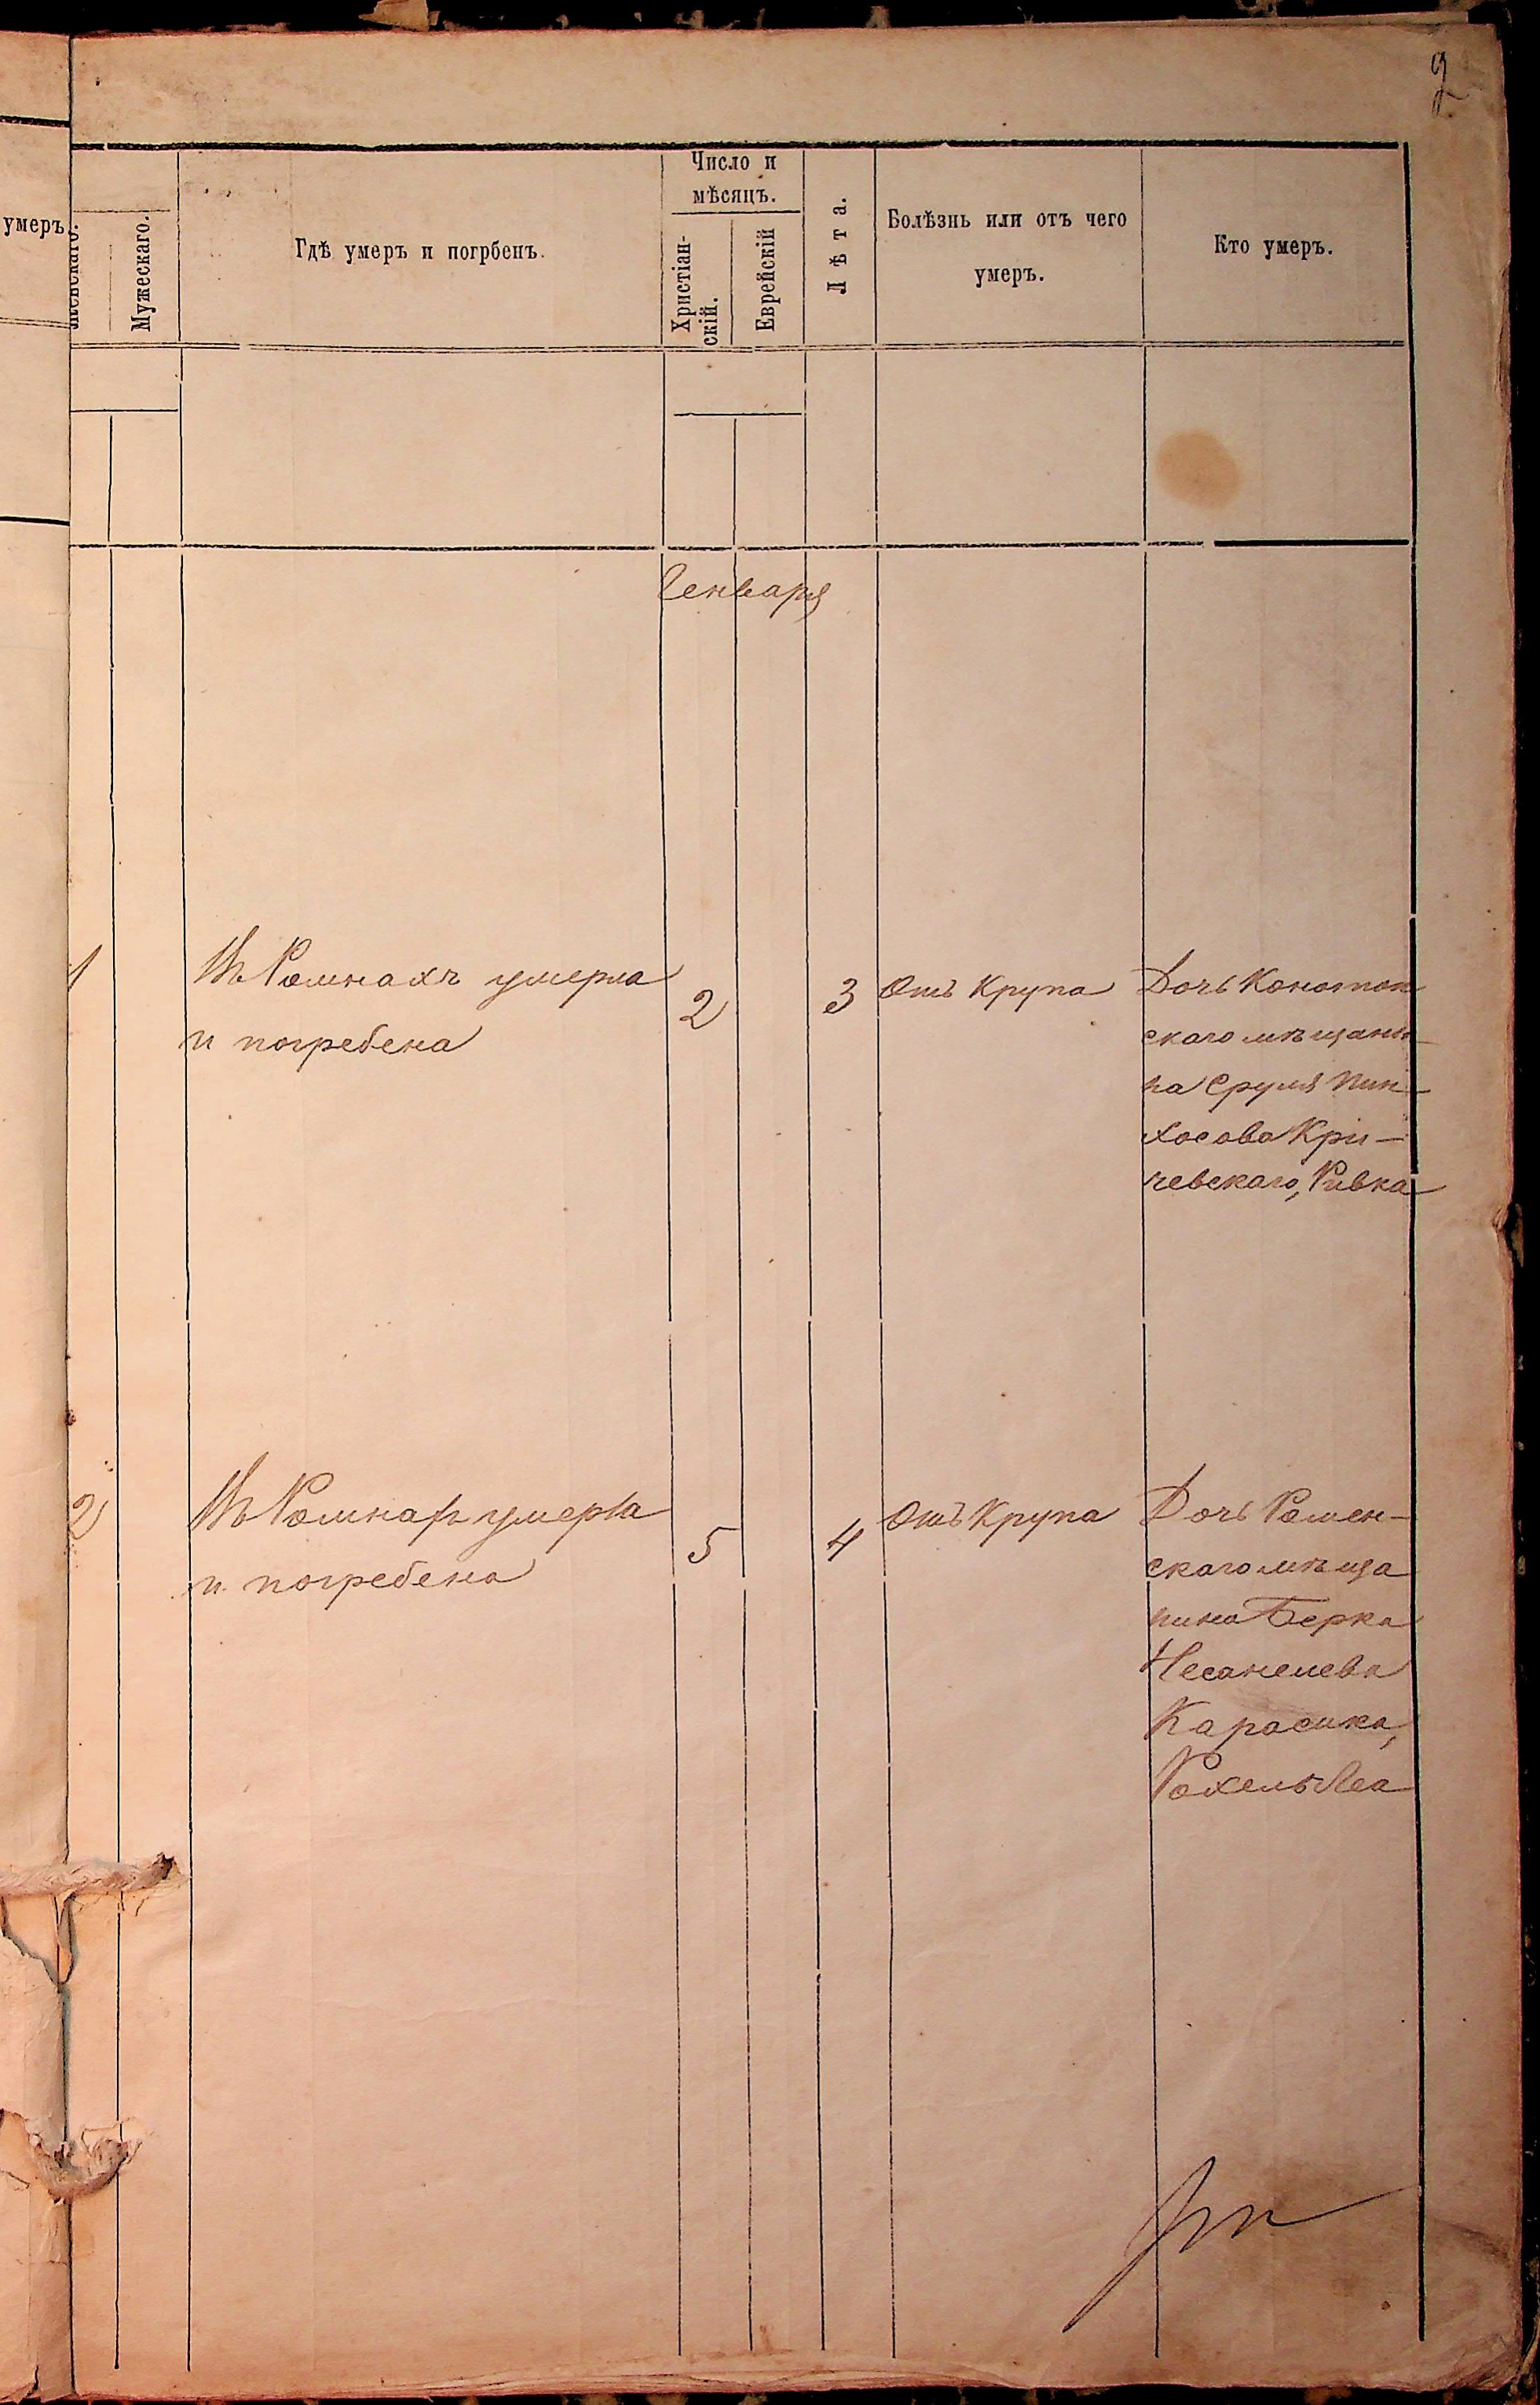 2
умеръ.
Женскаго.
Мужескаго.
Гдѣ умеръ и погрбенъ.
Число и
мѣсяцъ.
Христіан-
скій.
Еврейскій
Лѣта.
Болѣзнь или отъ чего
умеръ.
Кто умеръ.
Генваря
1
Въ Ромнахъ умерла
и погребена
2
3
Отъ Крупа
Дочь Конотоп
скаго мѣщани
на Сруля Пин-
хосова Кри-
чевскаго, Ривка
2
Въ Ромнахъ умерла
и погребена
5
4
Отъ Крупа
Дочь Ромен-
скаго мѣща
нина Берка
Несанелева
Карасика,
Рохель Леа